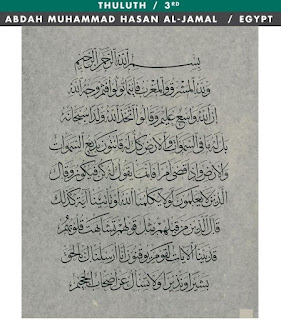 THULUTH / 3RD
ABDAH MUHAMMAD HASAN AL-JAMAL / EGYPT
بسم الله الرحمن الرحيم
ولله المشرق والمغرب فأينما تولوا فثم وجه الله
إن الله واسع عليم وقالوا اتخذ الله ولدا سبحانه
بل له ما في السموات والأرض كل له قانتون بديع السموات
والأرض وإذا قضى أمرا فإنما يقول له كن فيكون وقال
الذين لا يعلمون لولا يكلمنا الله أو تأتينا آية كذلك
قال الذين من قبلهم مثل قولهم تشابهت قلوبهم
قد بينا الآيات لقوم يوقنون إنا أرسلناك بالحق
بشيرا ونذيرا ولا تسأل عن أصحاب الجحيم